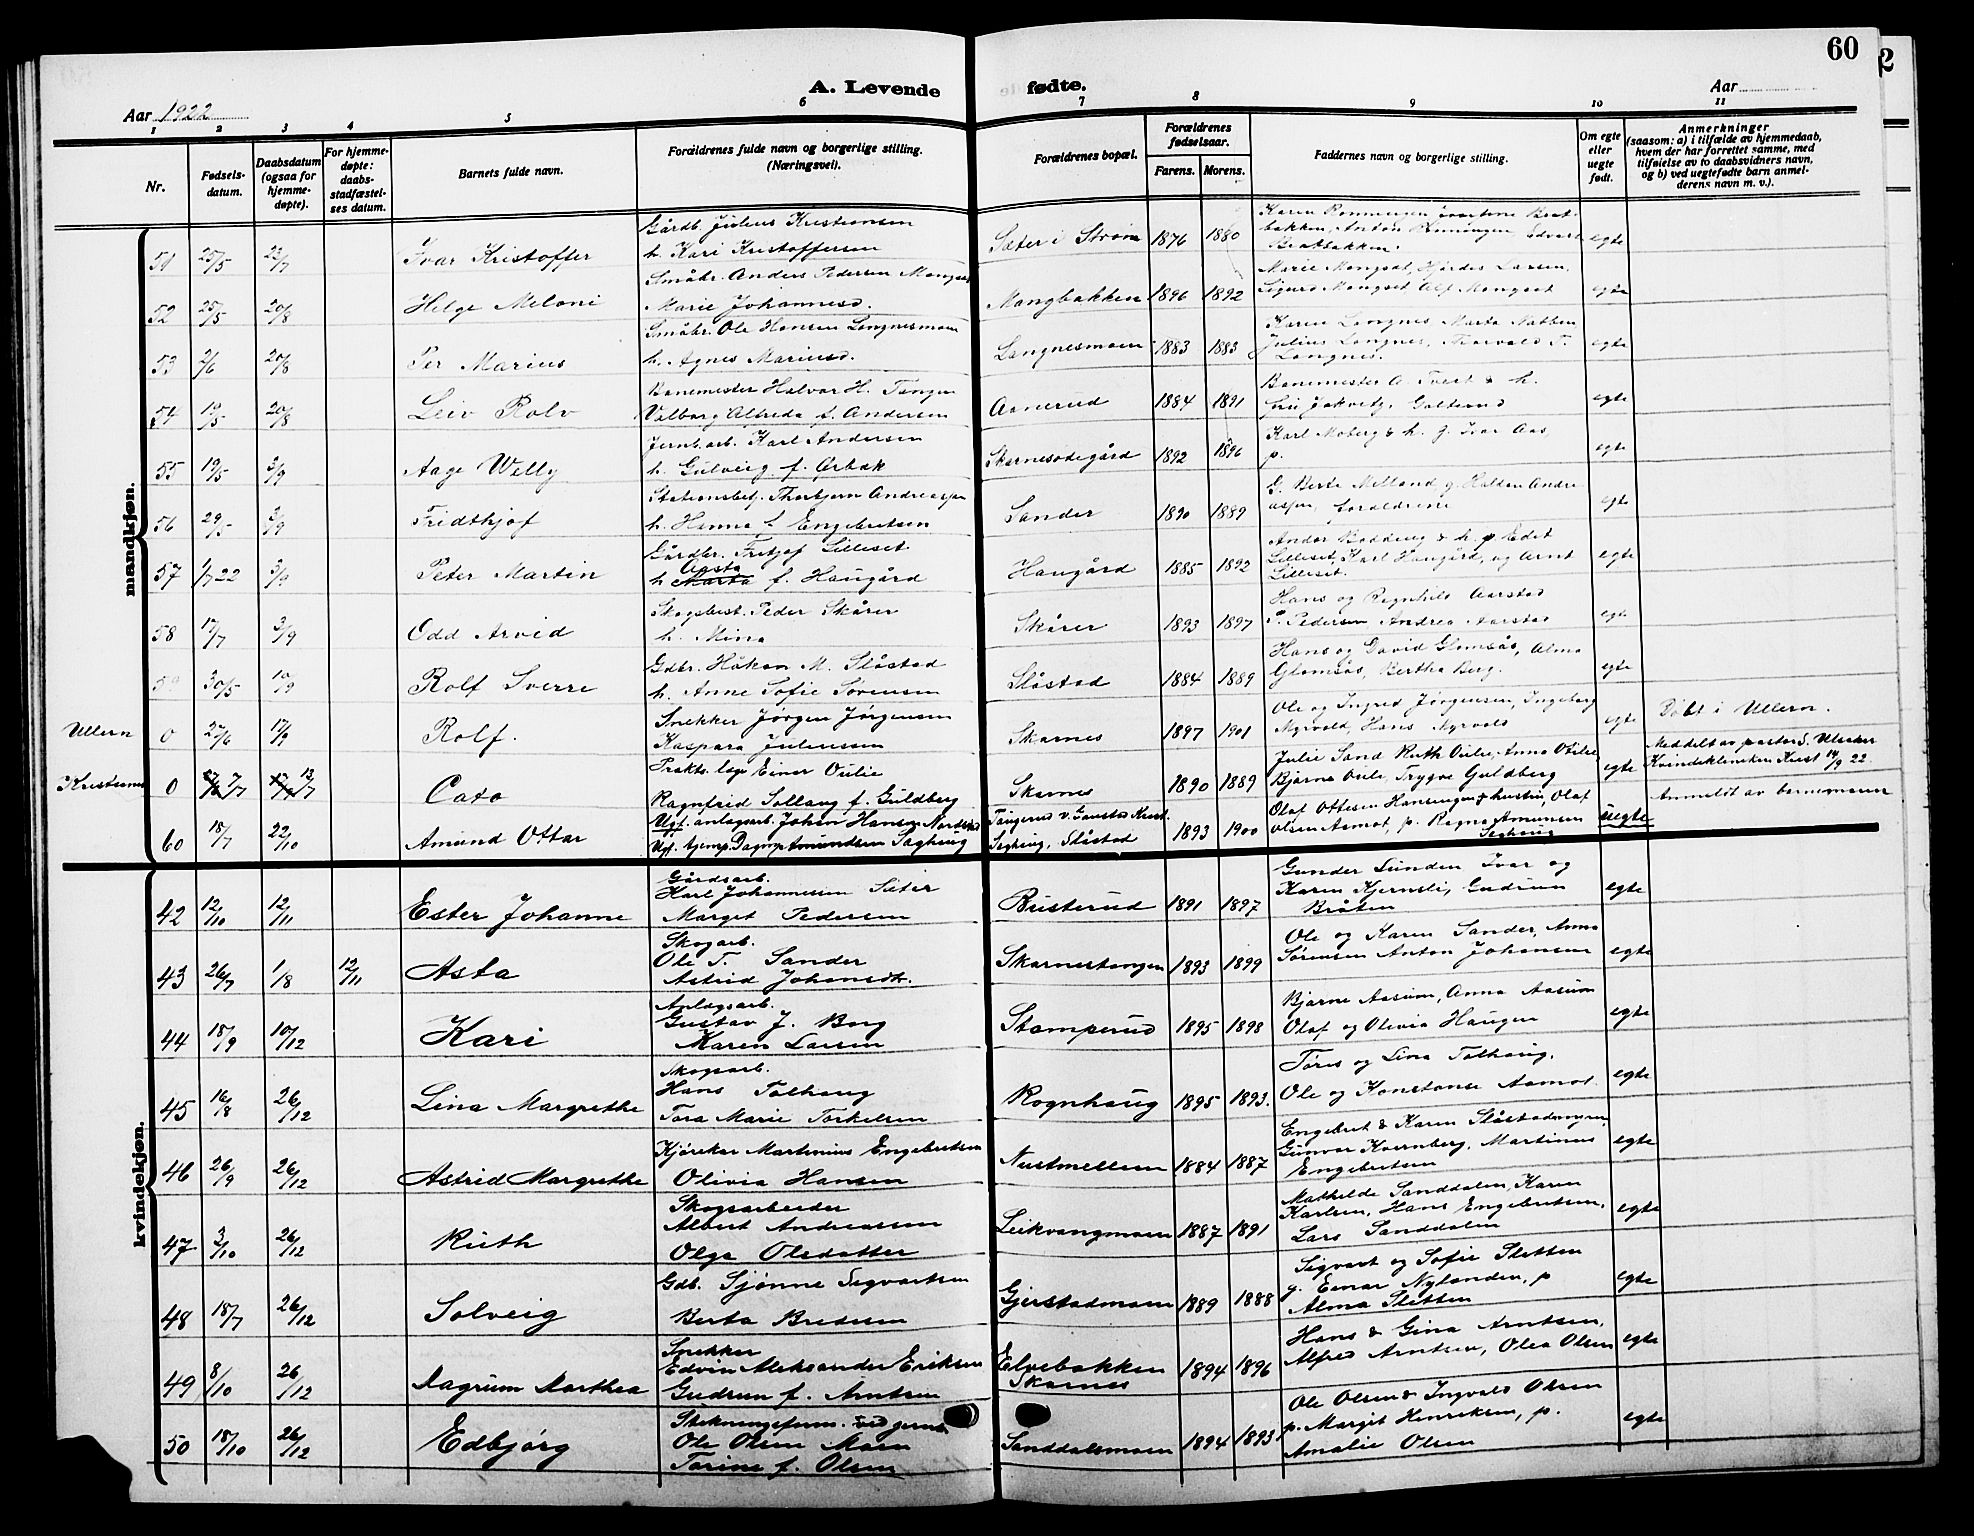 60
2
A. Levende fødte.
Aar 1922
Aar
1 2 3 4 5 6 7 8 9 10 11
Nr.
Fødsels-
datum.
Daabsdatum
(ogsaa for
hjemme-
døpte).
For hjemme-
døpte:
daabs-
stadfæstel-
ses datum.
Barnets fulde navn.
Forældrenes fulde navn og borgerlige stilling.
(Næringsvei).
Forældrenes bopæl.
Forældrenes
fødselsaar.
Farens. Morens.
Faddernes navn og borgerlige stilling.
Om egte
eller
uegte
født.
Anmerkninger
(saasom: a) i tilfælde av hjemmedaab,
hvem der har forrettet samme, med
tilføielse av to daabsvidners navn,
og b) ved uegtefødte barn anmel-
derens navn m. v.).
mandkjøn.
51 25/5 22/7 Ivar Kristoffer
Gårdb. Julius Kristiansen
h. Kari Kristoffersen
Sæter i Strøm 1876 1880
Brotbakken.
egte
52 25/5 20/8 Helge Meloni
Småbr. Anders Pedersen Mangset
Marie Johannesd.
Mangbakken 1896 1892
Marie Mangset, Hjørdis Larsen,
Sigurd Mangset Alf Mangset
egte
53 2/6 20/8 Per Marius
Småbr. Ole Hansen Langnesmoen
h. Agnes Mariusd.
Langnesmoen 1883 1883
Karen Langnes Marta Nabben
Julius Langnes, Torvald T.
Langnes.
egte
54 19/5 20/8 Leiv Rolv
Banemester Halvor H. Tangen
Valborg Alfreda f. Andersen
Aanerud 1884 1891
Banemester A. Tveit & h.
egte
55 19/5 3/9 Aage Welly
Jernb.arb. Karl Andersen
h. Gulveig f. Ørbæk
Skarnesødegård 1892 1896
Karl Moberg & h. g. Ivar Aas,
p.
egte
56 29/5 3/9 Fridthjof
Stationsbetj. Thorbjørn Andreassen
h. Hanna f. Engebretsen
Sander 1890 1889
G. Berte Melland g. Haldon Andre
asen, forældrene
egte
57 1/7 22 3/9 Peter Martin
Gårdbr. Fritjof Lilleset
h. Aasta Marta f. Haugård
Haugård 1885 1892
Lilleset, Karl Haugård, og Arnt
Lilleset.
egte
58 17/7 3/9 Odd Arvid
Skogsbest. Peder Skårer
h. Mina
Skårer 1893 1897
Hans og Ragnhild Aarstad
P. Pedersen Andrea Aarstad
egte
59 30/5 10/9 Rolf Sverre
Gdbr. Håkon M. Slåstad
h. Anne Sofie Sørensen
Slåstad 1884 1889
Hans og David Glomsås, Alma
Glomsås, Bertha Berg.
egte
Ullern 0 25/6 17/9 Rolf.
Snekker Jørgen Jørgensen
Kaspara Juliussen
Skarnes 1897 1901
Ole og Ingrid Jørgensen, Ingeborg
Myrvold, Hans Myrvold
egte
Døbt i Ullern.
0 7/7 13/7 Cato
Prakts. læge Einar Oulie
Ragnfrid Sollaug f. Guldberg
Skarnes 1890 1889
Julie Sand Ruth Oulie, Anna Otilie
Bjarne Oulie, Trygve Guldberg
egte
Meddelt av pastor S. Ulsaker
Kvindeklinikken Krist 14/9 22.
60 18/7 22/10 Amund Ottar
Ugf. anlægsarb. Johan Hansen Nordstad
Ugf. tjenp. Dagny Amundsen Saghaug
Tangerud v. Gaustad Krist.
Saghaug, Slåstad 1893 1900
Olaf Ottesen Hansengen & hustru, Olaf
Olsen Aamot, p. Ragna Amundsen
Saghaug
uegte
Anmeldt av barnemoren
kvindekjøn.
42 12/10 12/11 Ester Johanne
Gårdsarb.
Karl Johannesen Sæter
Marget Pedersen
Busterud 1891 1897
Gunder Lunden Ivar og
Karen Kjernsli, Gudrun
Bråten
egte
43 26/7 1/8 12/11 Asta
Skogarb.
Ole T. Sander
Astrid Johansdtr.
Skarnestangen 1893 1899
Ole og Karen Sander, Anna
Sørensen Anton Johansen
egte
44 18/9 10/12 Kari
Anlægsarb.
Gustav J. Borg
Karen Larsen
Stomperud 1895 1898
Bjarne Aasum, Anna Aasum
Olaf og Olivia Haugen
egte
45 16/8 26/12 Lina Margrethe
Skogsarb.
Hans Tolhaug
Tora Marie Torkelsen
Rognhaug 1895 1893.
Tores og Lina Tolhaug,
Ole og Konstanse Aamot.
egte
46 26/9 26/12 Astrid Margrethe
Kjørekar Martinius Engebretsen
Olivia Hansen
Nustmellem 1884 1887
Engebret & Karen Slåstadmoen,
Gunvor Kvernberg, Martinus
Engebretsen
egte
47 3/10 26/12 Ruth
Skogsarbeider
Albert Andreassen
Olga Olsdatter
Leikvangmoen 1887 1891
Mathilde Sanddalen, Karen
Karlsen, Hans Engebretsen,
Lars Sanddalen
egte
48 18/7 26/12 Solveig
Gdb. Sjønne Sigvartsen
Berta Bredesen
Gjerstadmoen 1889 1888
Sigvart og Sofie Sletten
g. Einar Nylenden, p
Alma Sletten
egte
49 8/10 26/12 Dagrun Dorthea
Snekker
Edvin Aleksander Eriksen
Gudrun f. Arntsen
Elvebakken
Skarnes 1894 1896
Hans & Gina Arntsen,
Alfred Arntsen, Olea Olsen
egte
50 18/10 26/12 Edbjørg
Ole Olsen Moen
Torine f. Olsen
Sanddalsmoen 1894 1893
Ole Olsen & Ingvald Olsen
p. Margit Henriksen, p.
Amalie Olsen
egte